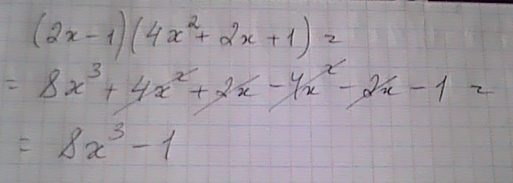 (2x-1)(4x²+2x+1)=
= 8x³+4x²+2x-4x²-2x-1=
= 8x³-1